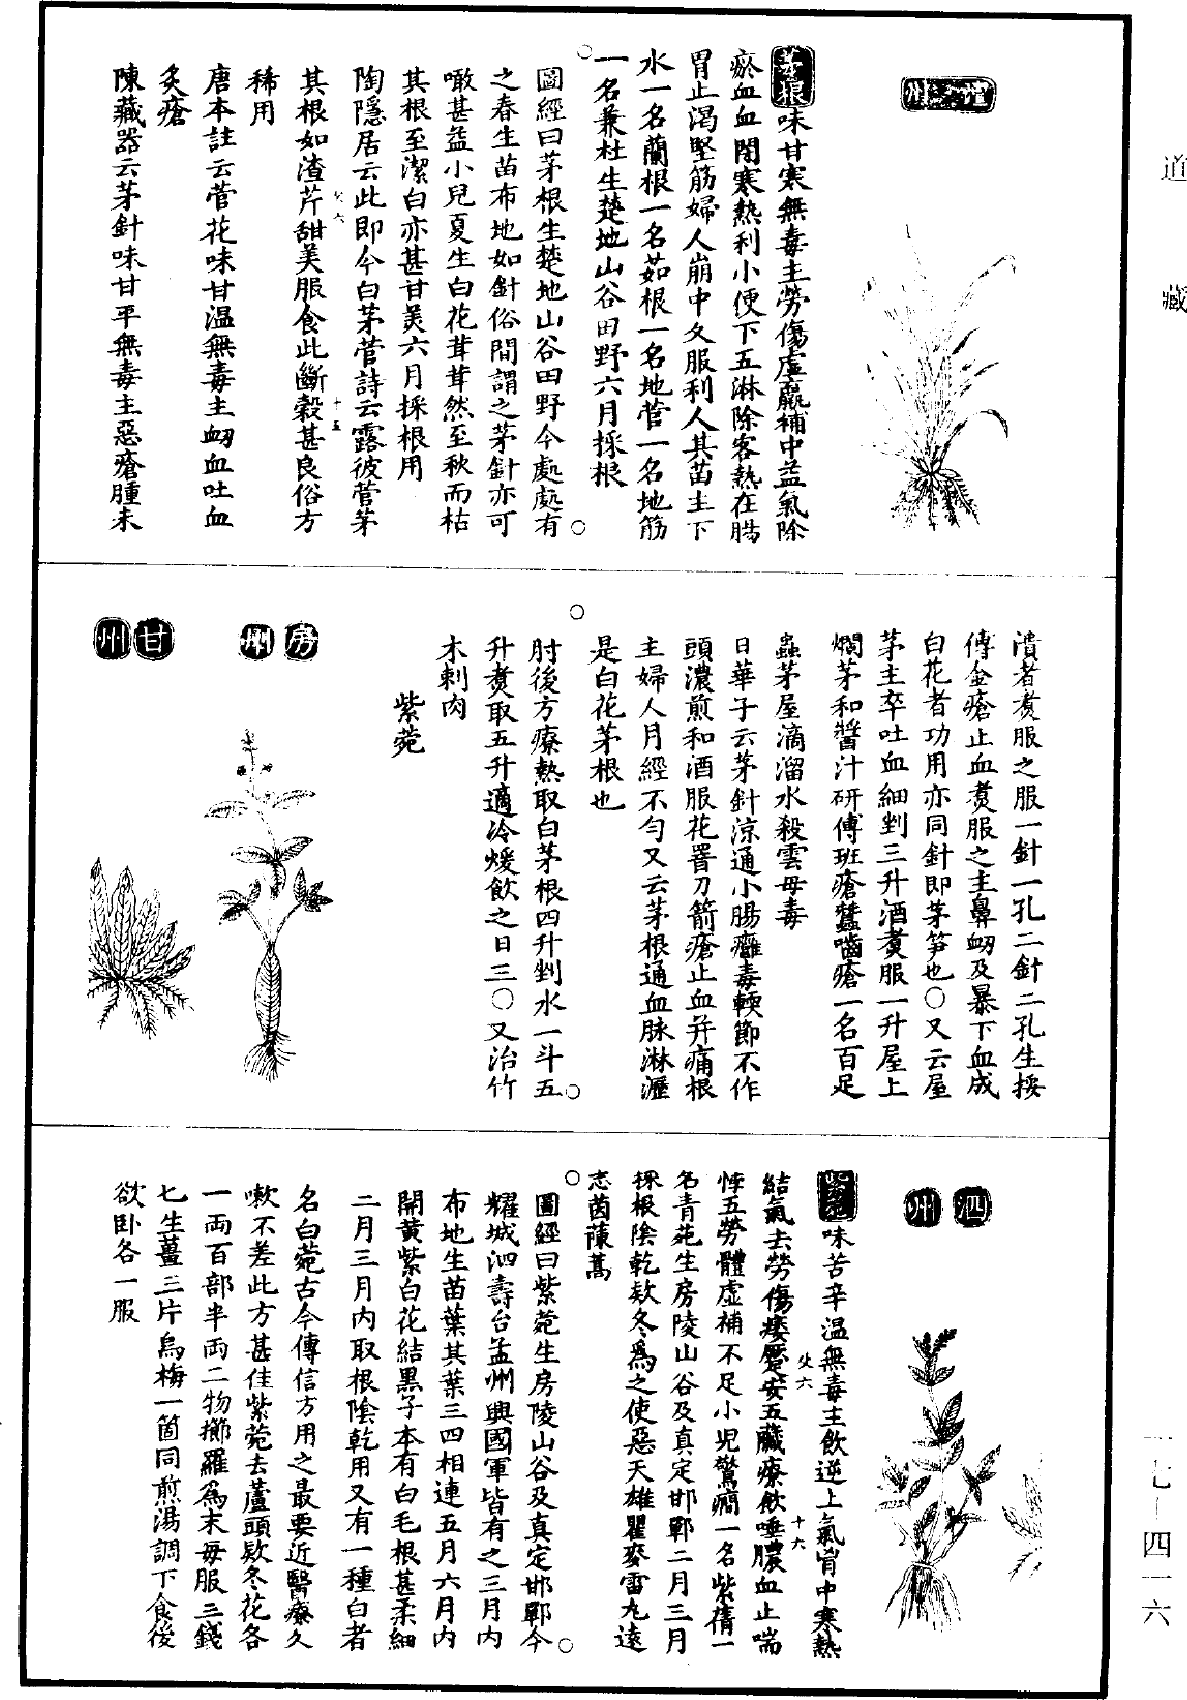 道藏
茅根味甘寒無毒主勞傷虛羸補中益氣除
瘀血血閉寒熱利小便下五淋除客熱在腸
胃止渴堅筋婦人崩中久服利人其苗主下
水一名蘭根一名茹根一名地菅一名地筋
一名兼杜生楚地山谷田野六月採根
圖經曰茅根生楚地山谷田野今處處有
之春生苗布地如針俗間謂之茅針亦可
噉甚益小兒夏生白花茸茸然至秋而枯
其根至潔白亦甚甘美六月採根用
陶隱居云此即今白茅菅詩云露彼菅茅
其根如渣芹甜美服食此斷穀甚良俗方
稀用
唐本註云菅花味甘溫無毒主衂血吐血
灸瘡
陳藏器云茅針味甘平無毒主惡瘡腫未
潰者煑服之服一針一孔二針二孔生挼
傅金瘡止血煑服之主鼻衂及暴下血成
白花者功用亦同針即茅笋也○又云屋
茅主卒吐血細剉三升酒煑服一升屋上
爛茅和醬汁研傅班瘡蠶嚙瘡一名百足
蟲茅屋滴溜水殺雲母毒
日華子云茅針涼通小腸癰毒輭節不作
頭濃煎和酒服花罯刀箭瘡止血并痛根
主婦人月經不勻又云茅根通血脉淋瀝
是白花茅根也
肘後方療熱取白茅根四升剉水一斗五
升煑取五升適冷煖飲之日三○又治竹
木刺肉
紫菀
房州
甘州
泗州
紫菀味苦辛溫無毒主欬逆上氣胷中寒熱
結氣去勞傷痿躄安五臟療欬唾膿血止喘
悸五勞體虛補不足小兒驚癎一名紫蒨一
名青菀生房陵山谷及真定邯鄲二月三月
採根陰乾欵冬爲之使惡天雄瞿麥雷丸遠
志茵蔯蒿
圖經曰紫菀生房陵山谷及真定邯鄲今
耀城泗壽台孟州興國軍皆有之三月內
布地生苗葉其葉三四相連五月六月內
開黃紫白花結黑子本有白毛根甚柔細
二月三月內取根陰乾用又有一種白者
名白菀古今傳信方用之最要近醫療久
嗽不差此方甚佳紫菀去蘆頭欵冬花各
一兩百部半兩二物擣羅爲末每服三錢
匕生薑三片烏梅一箇同煎湯調下食後
欲卧各一服
一七—四一六